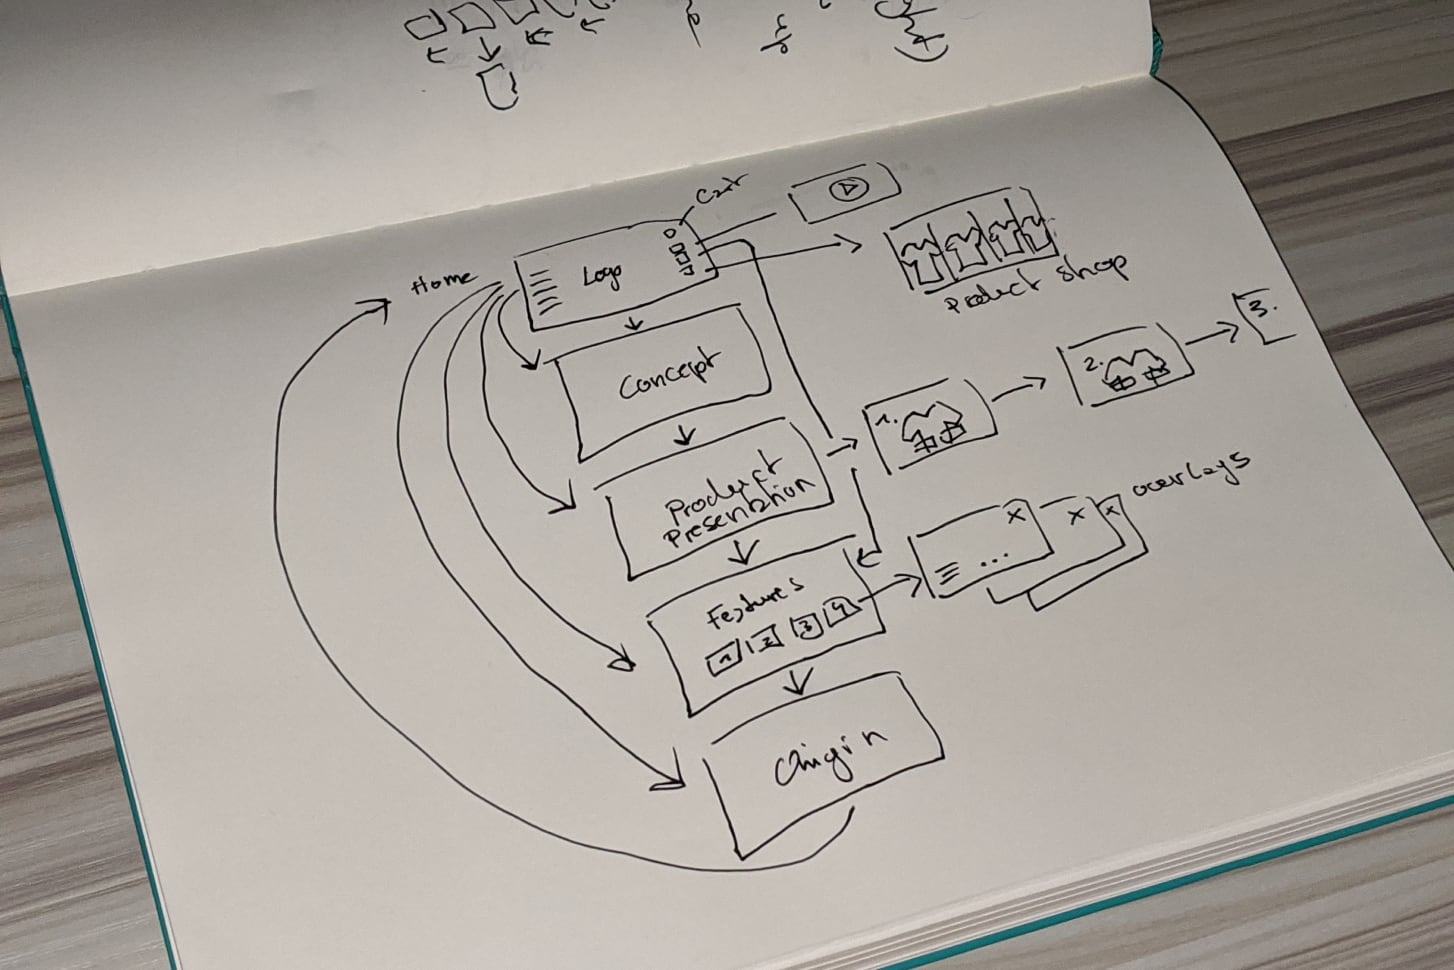 Cart
Home
Logo
Product Shop
Concept
3.
2.
1.
Product
Presentation
overlays
x x x
...
Features
1 2 3 4
Origin